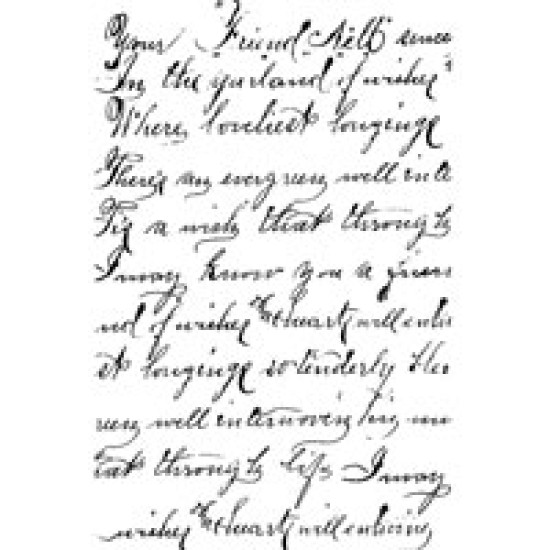 Your Friend Nell since
In the garland of wishes
Where loveliest longings
There's an evergreen well inte
Tis a wish that through
I may know you a frien
nd of wishes the hearts will entwi
st longings so tenderly the
reen well interwoven Tis an
hat through life I may
wishes the hearts will entwining